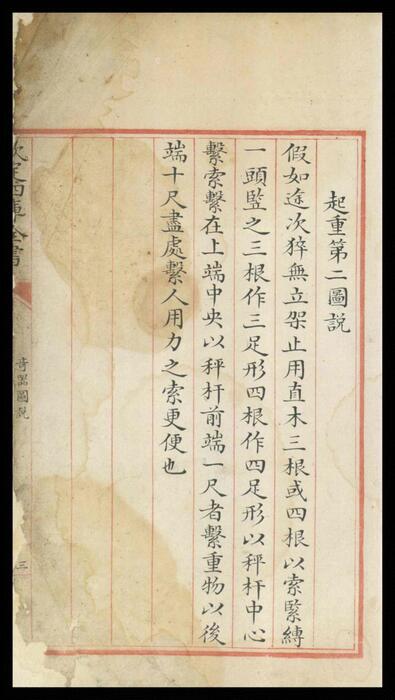 起重第二圖説
假如途次猝無立架止用直木三根或四根以索緊縛
一頭竪之三根作三足形四根作四足形以秤杆中心
繫索繫在上端中央以秤杆前端一尺者繫重物以後
端十尺盡處繫人用力之索更便也
欽定四庫全書
奇器圖説
三